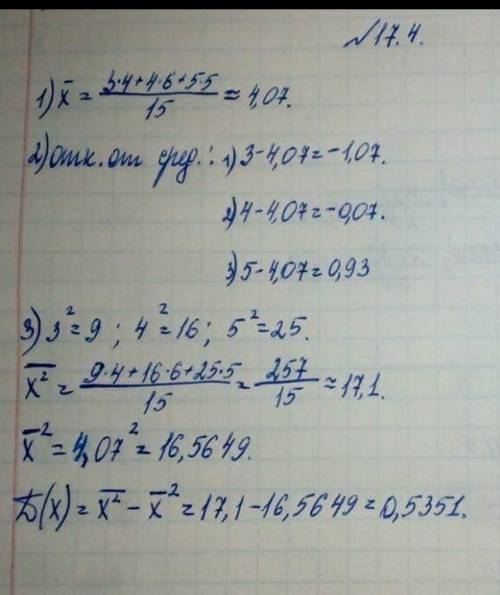 №17.4.
1) x̄ = (3·4+4·6+5·5)/15 ≈ 4,07.
2) отк. от сред.: 1) 3-4,07=-1,07.
2) 4-4,07=-0,07.
3) 5-4,07=0,93
3) 3²=9 ; 4²=16 ; 5²=25.
x̄² = (9·4+16·6+25·5)/15 = 257/15 ≈ 17,1.
x̄² = 4,07² = 16,5649.
D(x) = x̄² - x̄² = 17,1-16,5649=0,5351.